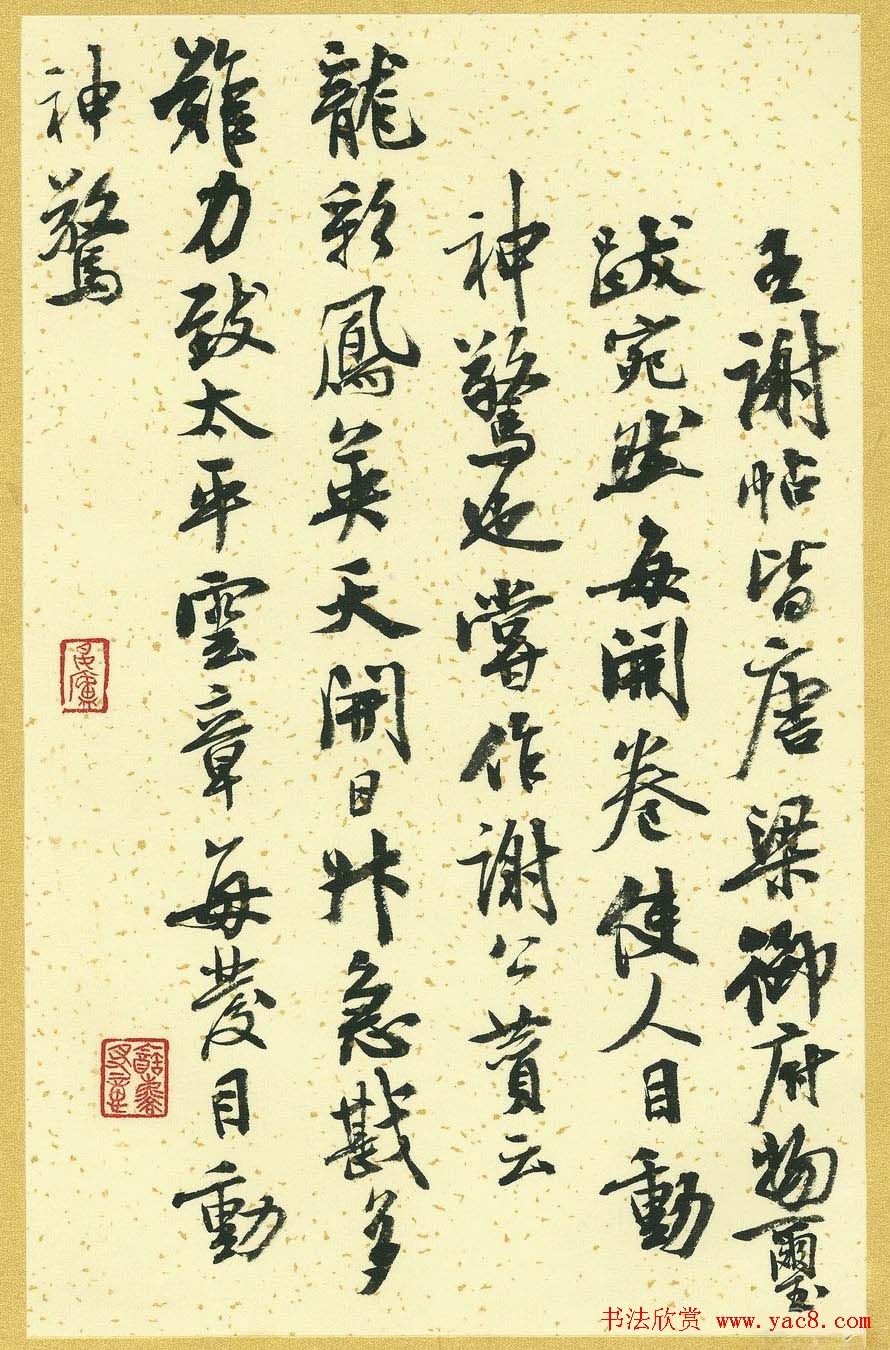 王謝帖皆唐梁御府物璽
跋宛然每開卷使人目動
神驚也嘗作謝公贊云
龍彩鳳英天開日升急戡多
難力致太平雲章每發目動
神驚
书法欣赏 www.yac8.com